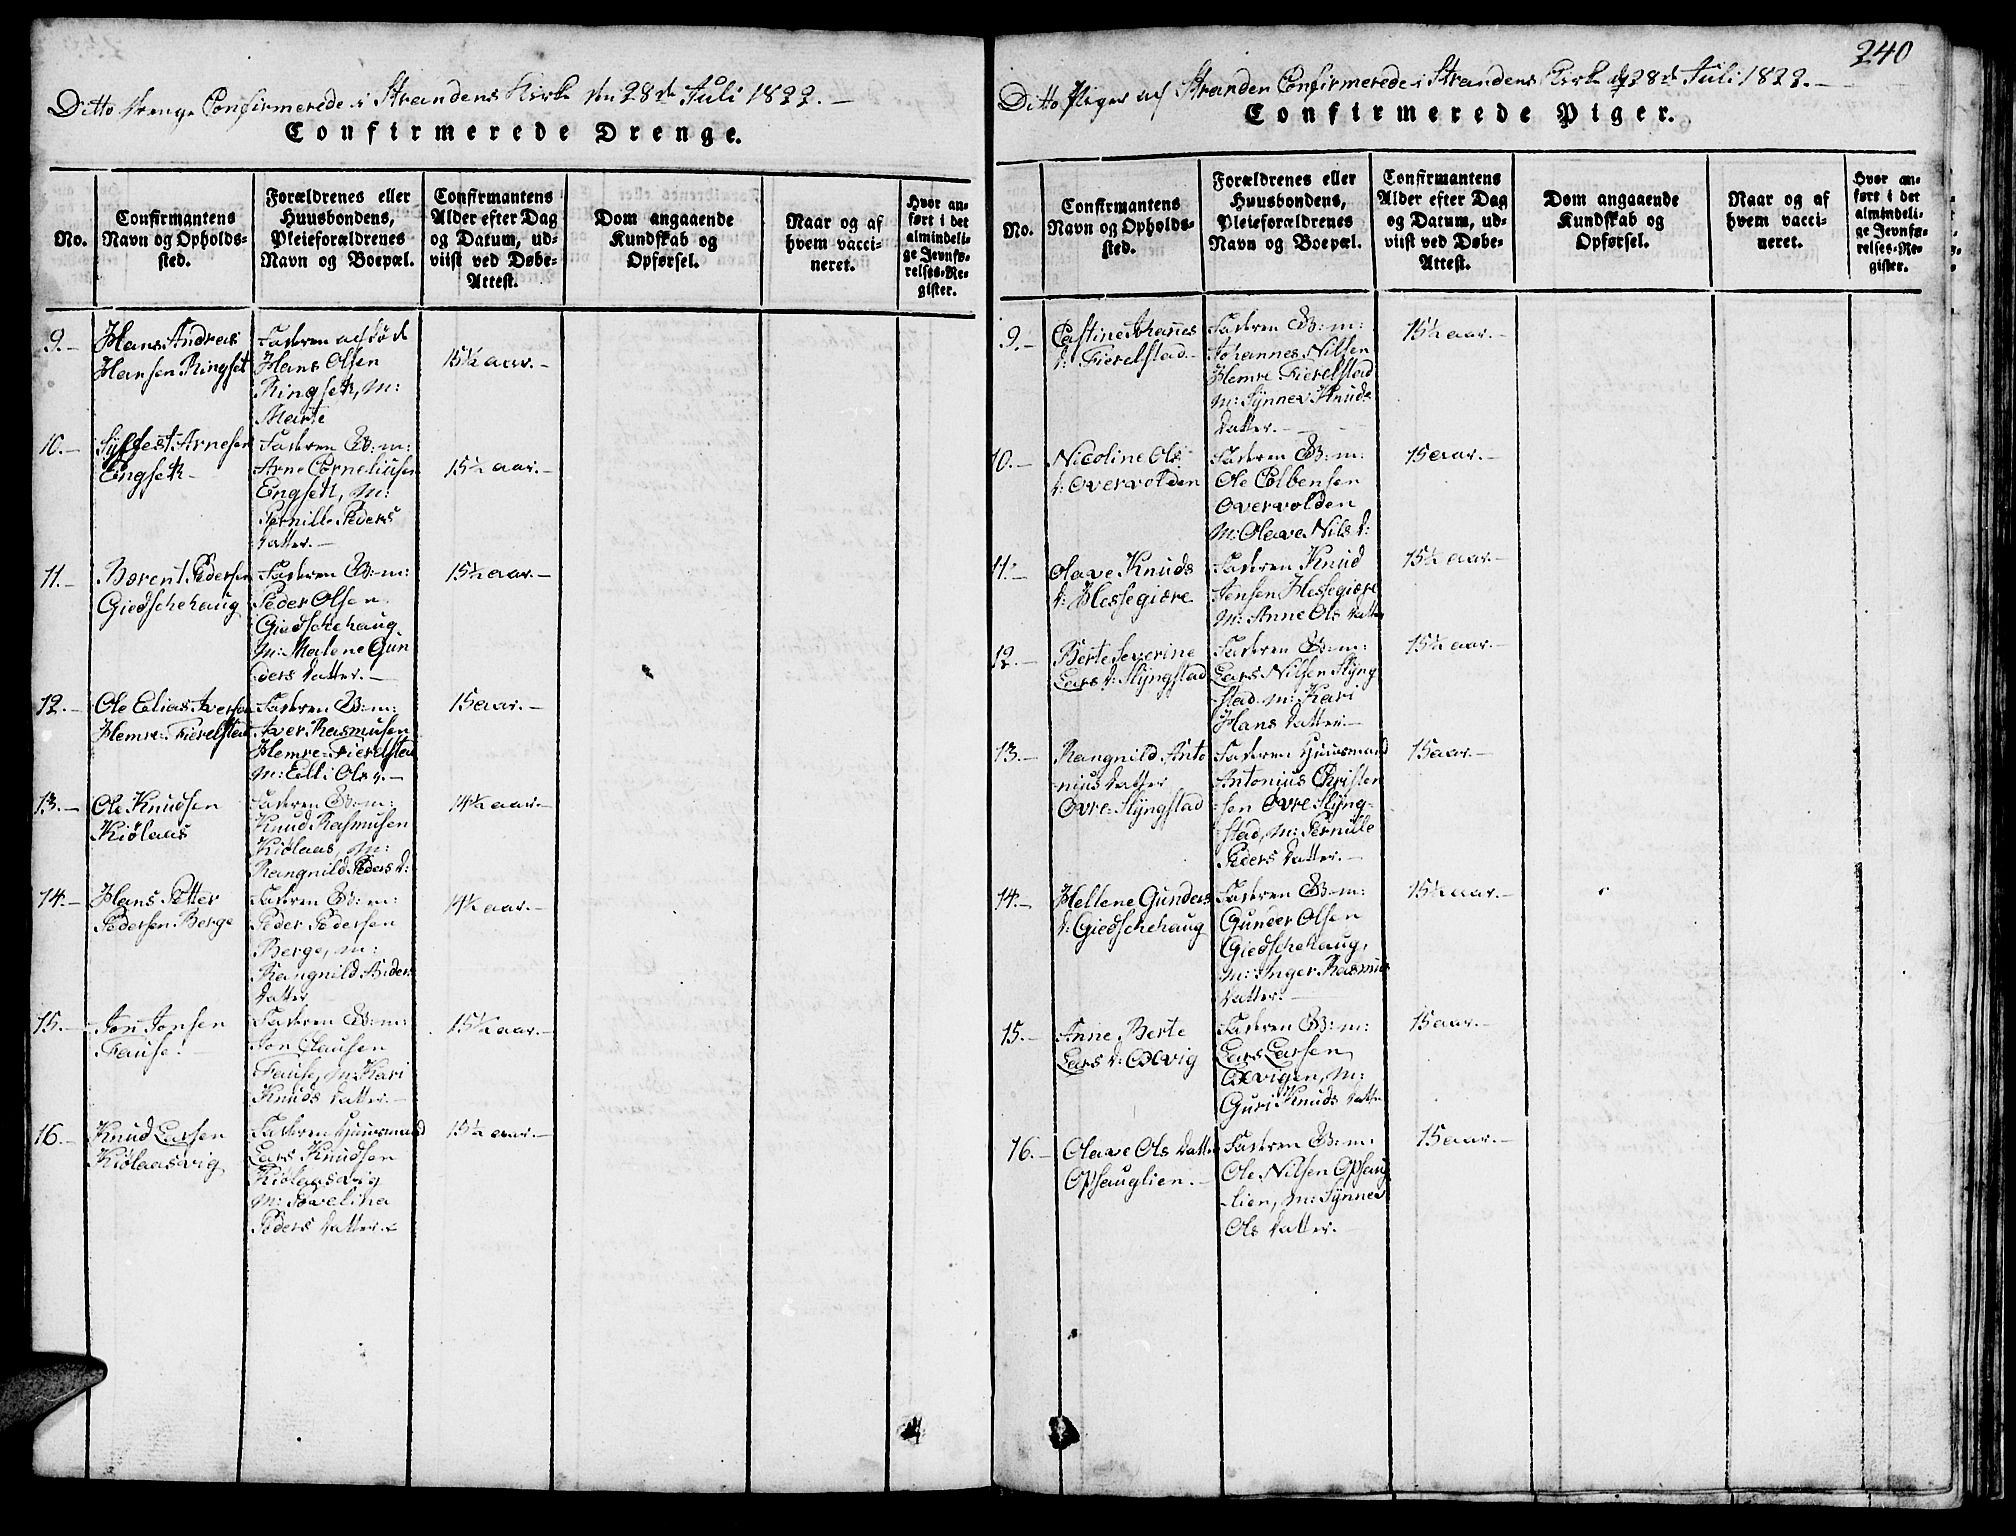 Ditto Drenge Confirmerede i Strandens Kirke den 28de Juli 1822.-
Confirmerede Drenge.
No.
Confirmantens
Navn og Opholds-
sted.
Forældrenes eller
Huusbondens,
Pleieforældrenes
Navn og Boepæl.
Confirmantens
Alder efter Dag
og Datum, ud-
viist ved Døbe-
Attest.
Dom angaaende
Kundskab og
Opførsel.
Naar og af
hvem vacci-
neret.
Hvor an-
ført i det
almindeli-
ge Jevnfø-
relses-Re-
gister.
9.-
Hans Andreas
Hansen Ringset
Faderen afdøde
Hans Olsen
Ringseth, M:
Marte
15½ aar.-
10.-
Syffest Arnesen
Engseth-
Faderen B:m:
Arne Corneliusen
Engseth, M:
Pernille Peders
datter.-
15½ aar.-
11.-
Berent Pedersen
Giedschehaug
Faderen B:m:
Peder Olsen
Giedschehaug
M: Malene Gun
ders datter.-
15½ aar.-
12.-
Ole Elias Iversen
Hemre-Fierelstad
Faderen B:m:
Iver Rasmusen
Hemre-Fierelstad
M: Elli Ols d.-
15 aar.-
13.-
Ole Knudsen
Kiølaas
Faderen B:m:
Knud Rasmusen
Kiølaas, M:
Rangnild Peders d:
14½ aar.-
14.-
Hans Petter
Pedersen Berge
Faderen B:m:
Peder Pedersen
Berge, M:
Rangnild Anders
datter
14½ aar.-
15.-
Jon Jonsen
Fause.-
Faderen B:m:
Jon Clausen
Fause, M: Kari
Knuds datter.-
15½ aar.-
16.-
Knud Larsen
Kiølaasvig
Faderen Huusmand
Lars Knudsen
Kiølaasvig
M: Jovelina
Peders datter.-
15½ aar.-
240
Ditto Piger af Stranden Confirmerede i Strandens Kirke d 28de Juli 1822.-
Confirmerede Piger.
No.
Confirmantens
Navn og Opholds-
sted.
Forældrenes eller
Huusbondens,
Pleieforældrenes
Navn og Boepæl.
Confirmantens
Alder efter Dag
og Datum, ud-
viist ved Døbe-
Attest.
Dom angaaende
Kundskab og
Opførsel.
Naar og af
hvem vacci-
neret.
Hvor an-
ført i det
almindeli-
ge Jevnfø-
relses-Re-
gister.
9.-
Johannes
d: Fierelstad-
Faderen B:m:
Johannes Nilsen
Hemre Fierelstad
M: Synnev Knuds
datter.-
15½ aar.-
10.-
Nicoline Ols
d: Overvolden
Faderen B:m:
Ole Colbensen
Overvolden
M: Olave Nils d:
15 aar.-
11.-
Olave Knuds
d: Hessegiære
Faderen Knud
Jensen Hessegiære
M: Anne Ols datter
15½ aar.-
12.-
Berte Severine
Lars d: Slyngstad
Faderen B:m:
Lars Nilsen Slyng
stad M: Kari
Hans datter.-
15½ aar.-
13.-
Rangnild Anto
nius datter
Øvre-Slyngstad
Faderen Huusmand
Antonius Christen
sen Øvre Slyng-
stad, M: Pernille
Peders datter.-
15 aar.-
14.-
Hellene Gunders
d: Giedschehaug
Faderen B:m:
Gunder Olsen
Giedschehaug,
M: Inger Rasmus
datter.-
15½ aar.-
15.-
Anne Berte
Lars d: Oxvig
Faderen B:m:
Lars Larsen
Oxvigen, M:
Guri Knuds datter
15 aar.-
16.-
Olave Ols datter
Opsauglien.-
Faderen B:m:
Ole Nilsen Opsaug
lien, M: Synnev
Ols datter.-
15 aar.-